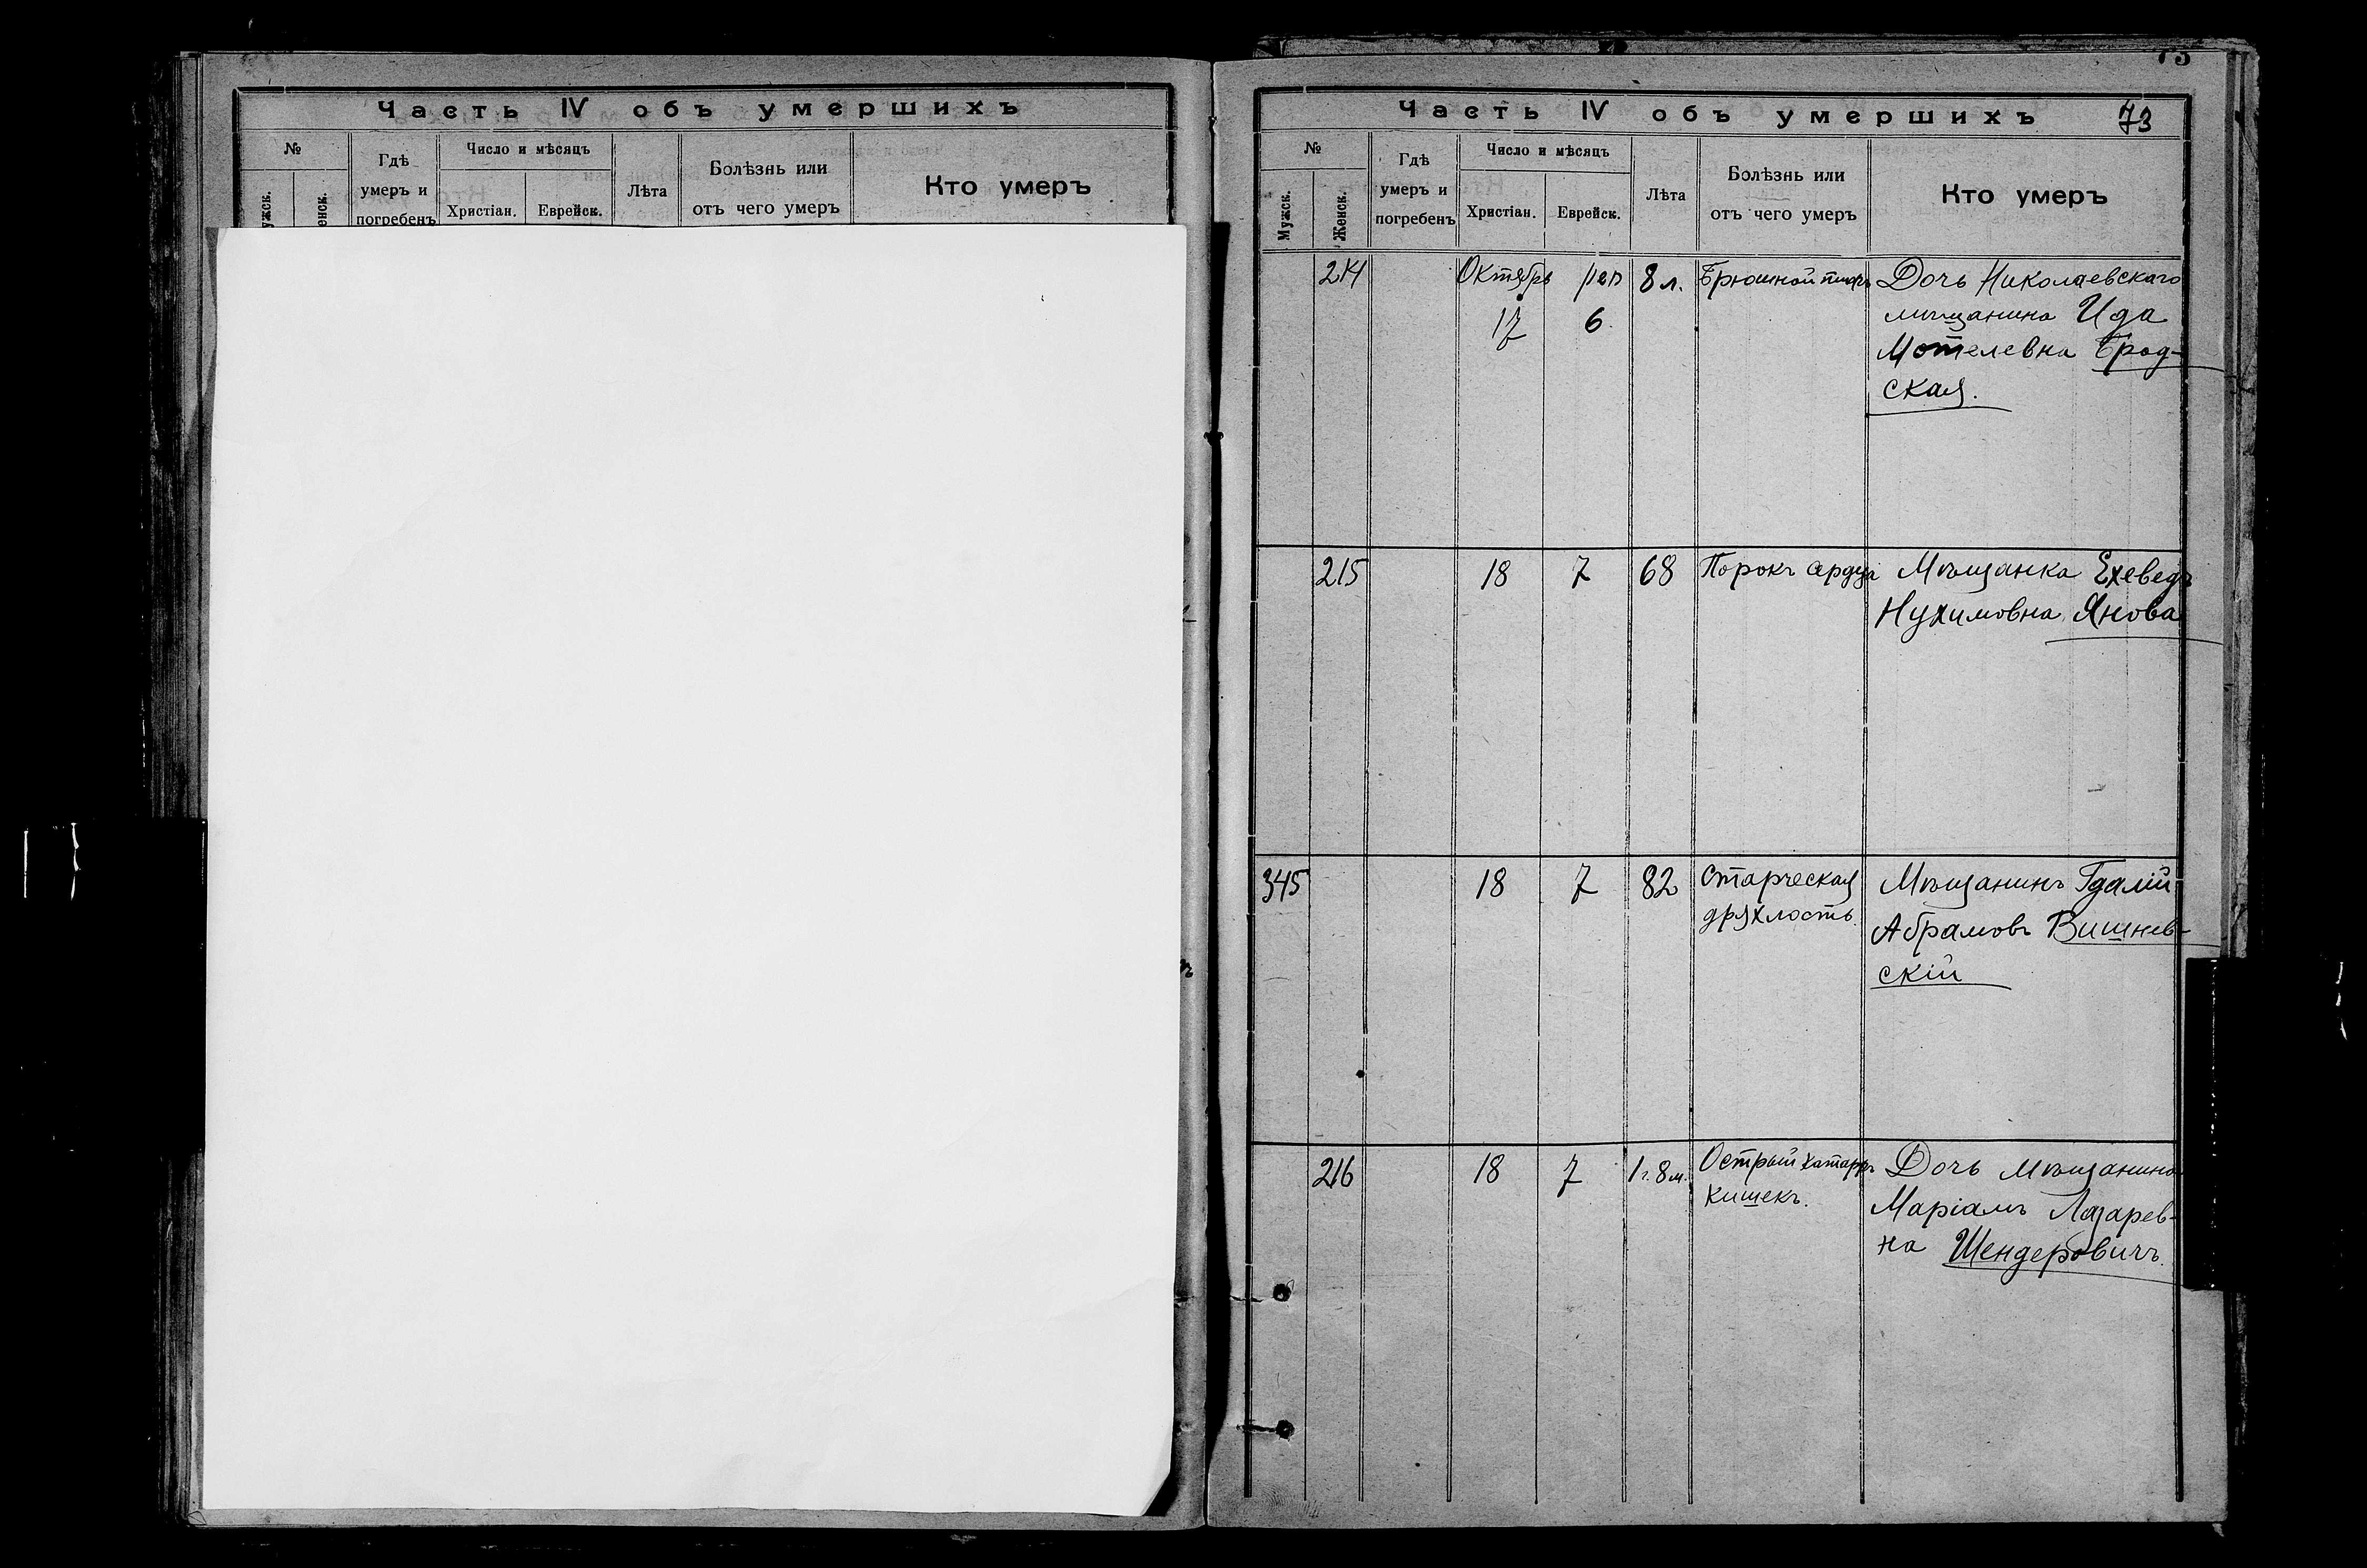 Часть IV объ умершихъ
№
Гдѣ умеръ и погребенъ
Число и мѣсяцъ
Христіан.
Еврейск.
Лѣта
Болѣзнь или
отъ чего умеръ
Кто умеръ
Часть IV объ умершихъ 73
№
Мужск.
Женск.
Гдѣ
умеръ и
погребенъ
Число и мѣсяцъ
Христіан.
Еврейск.
Лѣта
Болѣзнь или
отъ чего умеръ
Кто умеръ
214 Октябрь 8 л. Брюшной тифъ Дочь Николаевскаго
17 6 мѣщанина Ида
Мотелевна Брод-
ская.
215 18 7 68 Порокъ сердца Мѣщанка Ехеведъ
Нухимовна Янова
345 18 7 82 Старческая Мѣщанинъ Гдалій
дряхлость Абрамовъ Вишнев-
скій
216 18 7 1 г. 8 м. Острый катарръ Дочь мѣщанина
кишекъ. Маріамъ Лазарев-
на Шендеровичъ.